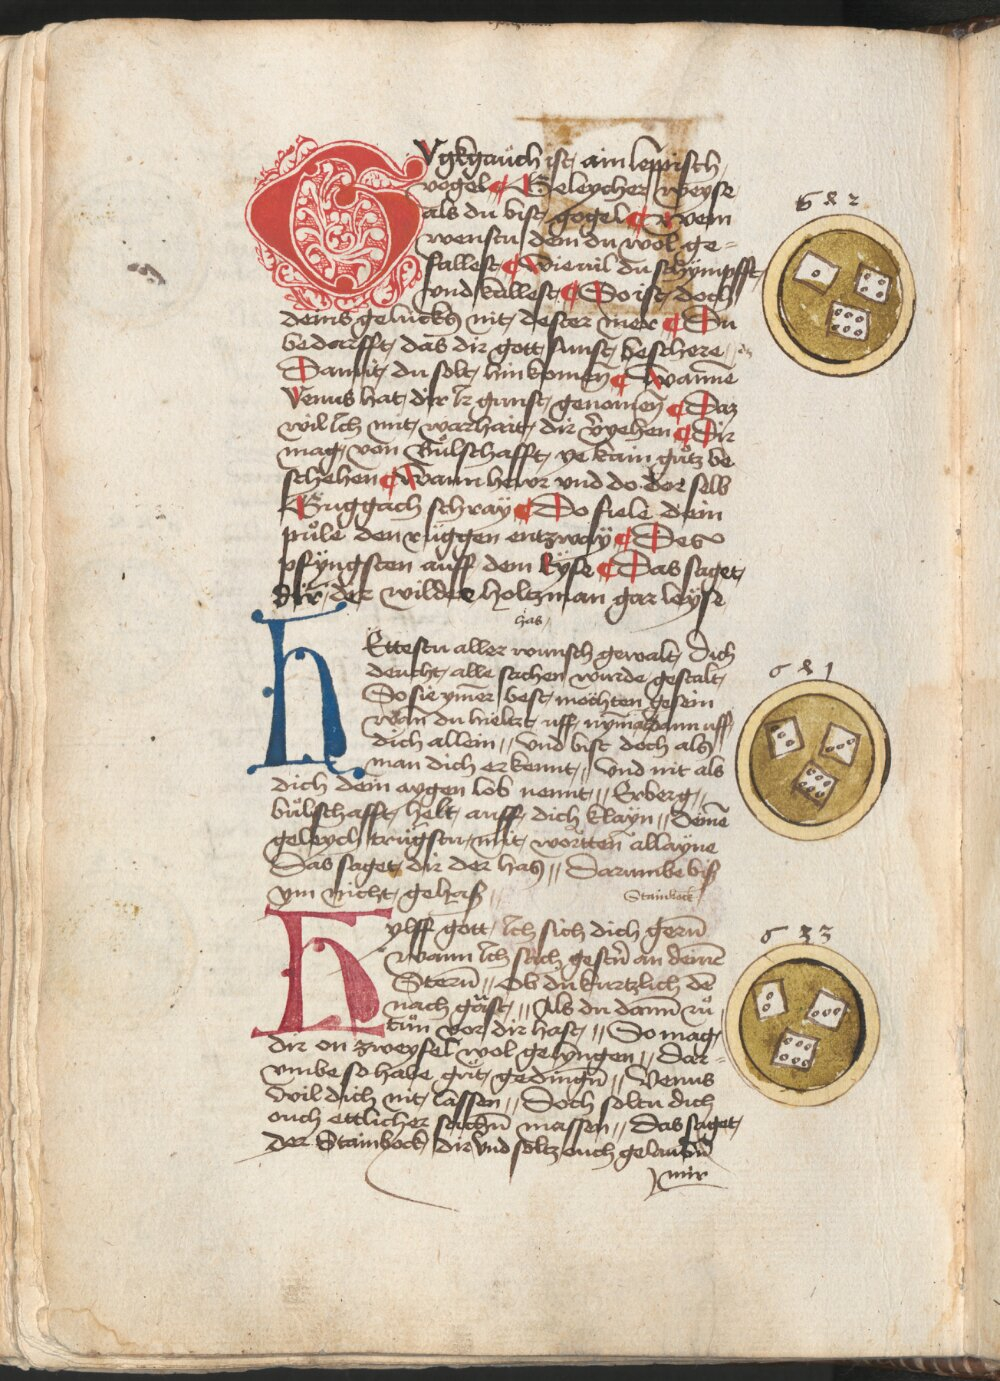 GVgkgauch ist ain lewisch
vogel Geleycher weyse
als du bist gogel Wem
wenstu dem du wol ge=
fallest Wievil du schympfft
vnd kallest So ist doch
deins gelucks nit dester mer Du
bedarfft das dir gott sunst beschere
Damit du solt hinkomen Wanne
Venus hat dir Ir gunst genomen Daz
wil Ich mit warhait dir veryehen Dir
mag von Bůlschafft ye kain gůtz be
schehen Wann hewr vnd do der selb
Guggach schray Do fiele dein
půle den ruggen entzway Des
pfyngsten auff dem Eyse Das saget
dir der wilde holtzman gar leyse
6 & 2
has
hEttestu aller wunsch gewalt Dich
deucht alle sachen wurde gestalt
So sie ymer best mochten gesein
wan du hieltzt uff nyman dann uff
dich allein // vnd bist doch als
man dich erkennt // vnd nit als
dich dein aygen lob nennt // Erberg //
bůlschafft helt auff dich klayn // Deine
geleych trůgstu mit wortten allayne
Das saget dir der has // Darumbe biß
ym nicht gehaß //
6 & 1
Stainbock
hylff gott Ich sich dich gern
Wann Ich sich gestn an deine
Stern // Ob du kurtzlich de
nach gast // Als du dann zů
tůn vor dir hast // So mag
dir on zweyfel wol gelyngen // Dar=
vmbe so habe gůt gedingn // Venus
wil dich nit lassen // Doch soltu dich
ouch ettlicher sachn massen // Das saget
der Stainbock dir vnd soltz ouch gelaubn
mir
6 33